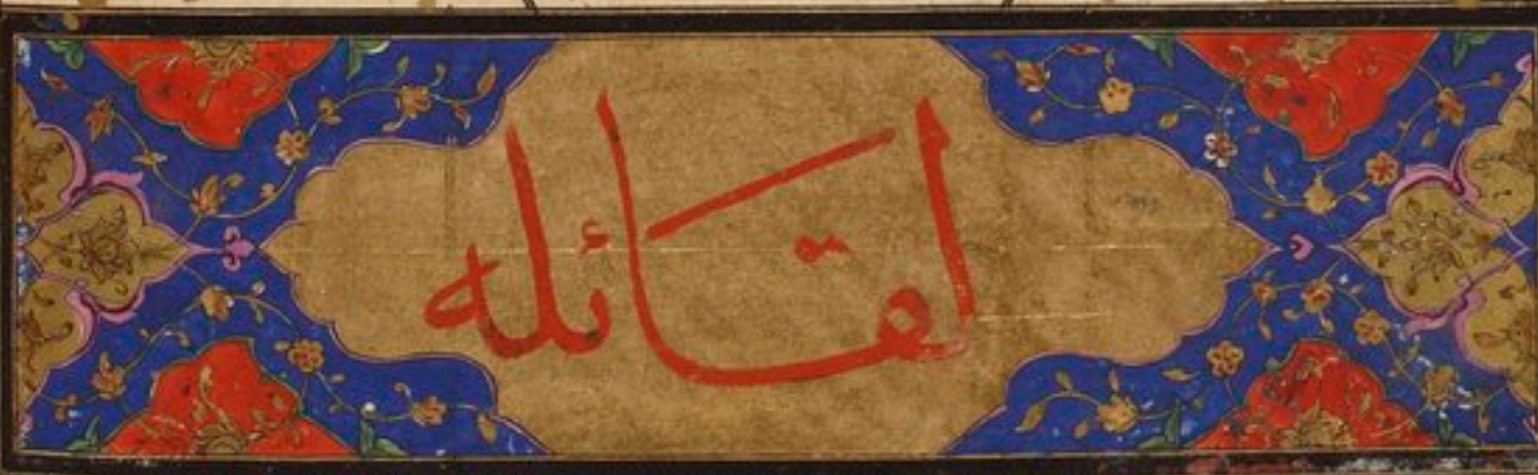 لقائله